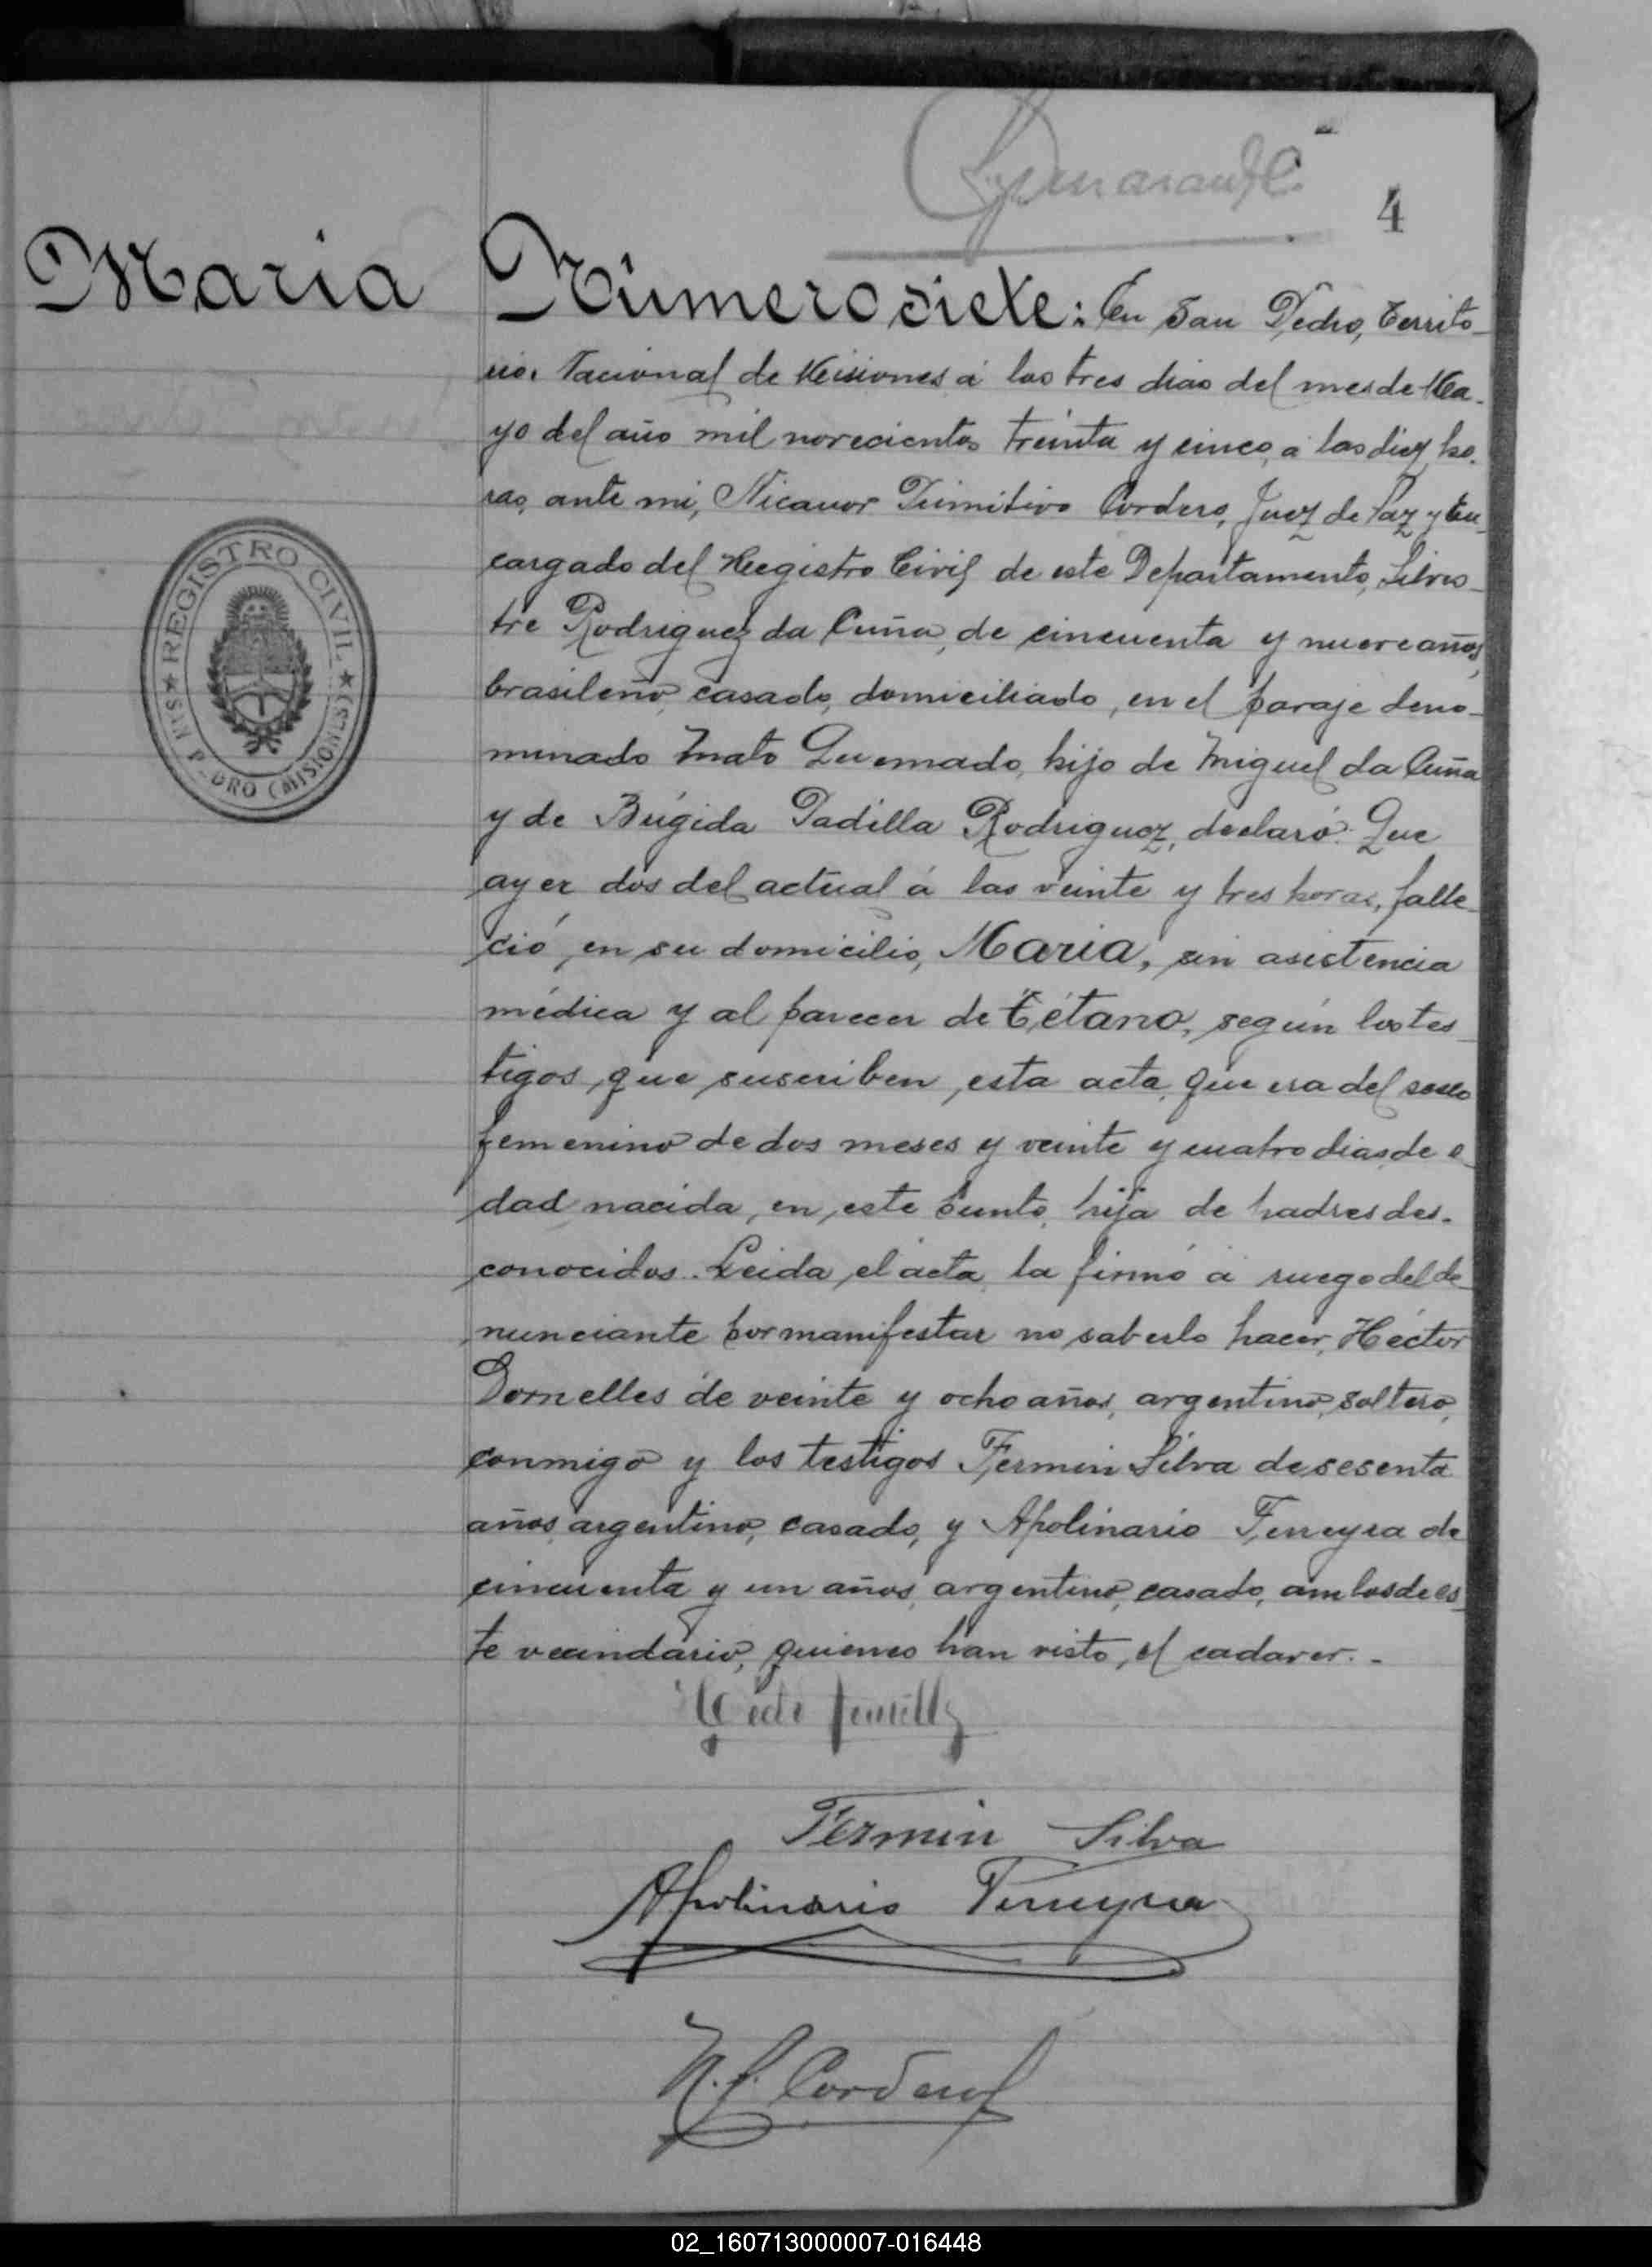 4
Maria
Número siete: En San Pedro, Territo-
rio Nacional de Misiones á los tres dias del mes de Ma-
yo del año mil novecientos treinta y cinco, a las diez ho-
ras, ante mi, Nicanor Primitivo Cordero, Juez de Paz y En-
cargado del Registro Civil de este Departamento, Silves-
tre Rodriguez da Cuña, de cincuenta y nueve años,
brasileño, casado, domiciliado, en el paraje deno-
minado Mato Quemado, hijo de Miguel da Cuña
y de Brígida Padilla Rodriguez, declaró: Que
ayer dos del actual á las veinte y tres horas, falle-
ció, en su domicilio, Maria, sin asistencia
médica y al parecer de Tétano, según los tes-
tigos, que suscriben, esta acta, que era del sexo
femenino de dos meses y veinte y cuatro dias de e-
dad nacida, en este punto, hija de padres des-
conocidos. Leida, el acta, la firmó á ruego del de-
nunciante por manifestar no saberlo hacer, Héctor
Dornelles de veinte y ocho años, argentino, soltero,
conmigo y los testigos Fermin Silva de sesenta
años, argentino, casado, y Apolinario Ferreyra de
cincuenta y un años, argentino, casado, ambos de es-
te vecindario, quienes han visto, el cadaver. -
REGISTRO CIVIL
SAN PEDRO (MISIONES)
Fermin Silva
Apolinario Ferreyra
N. P. Cordero
02_160713000007-016448